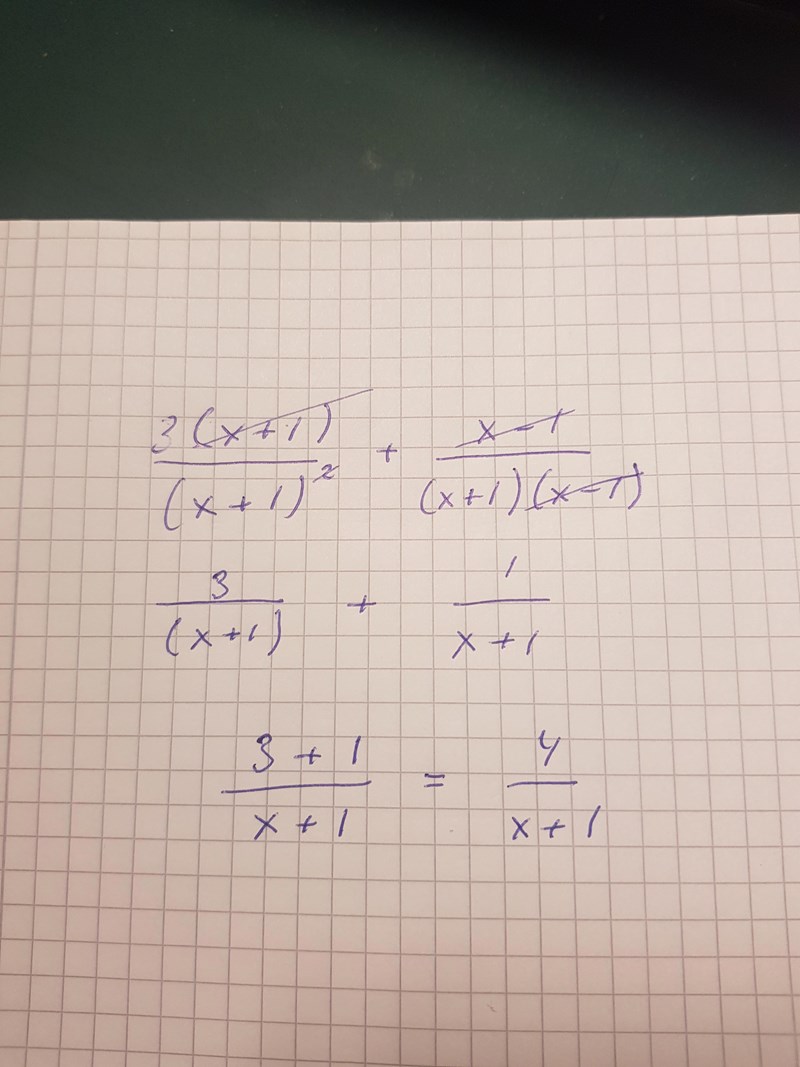 3(x+1)/(x+1)² + x-1/(x+1)(x-1)
3/(x+1) + 1/x+1
3+1/x+1 = 4/x+1